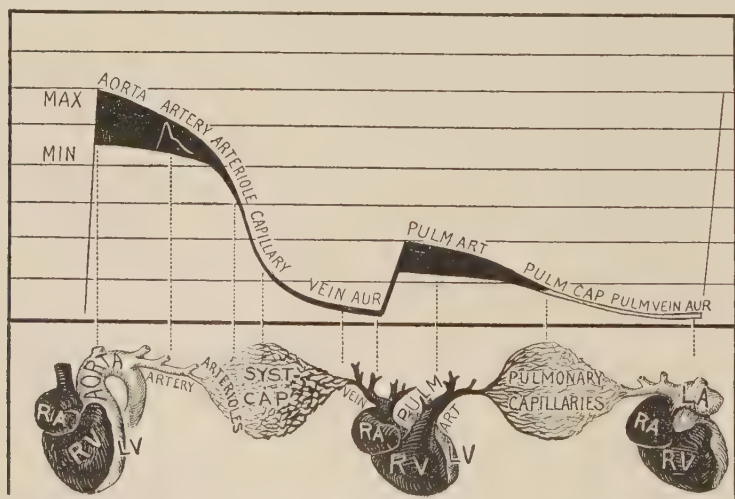 MAX
MIN
AORTA ARTERY ARTERIOLE CAPILLARY
VEIN AUR
PULM ART
PULM CAP PULM VEIN AUR
RA
RV
AORTA
LV
ARTERY
ARTERIOLES
SYST
CAP
VEIN
RA
PULM
ART
RV
LV
PULMONARY
CAPILLARIES
LA
RA
RV